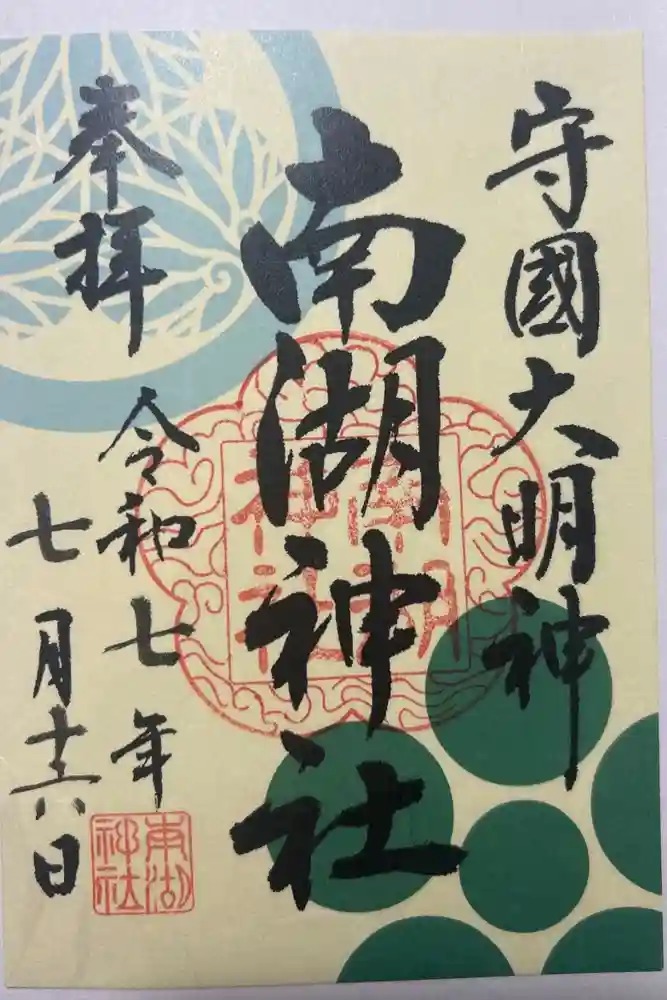 守國大明神
南湖神社
奉拝
令和七年
七月十六日
南湖神社
南湖神社